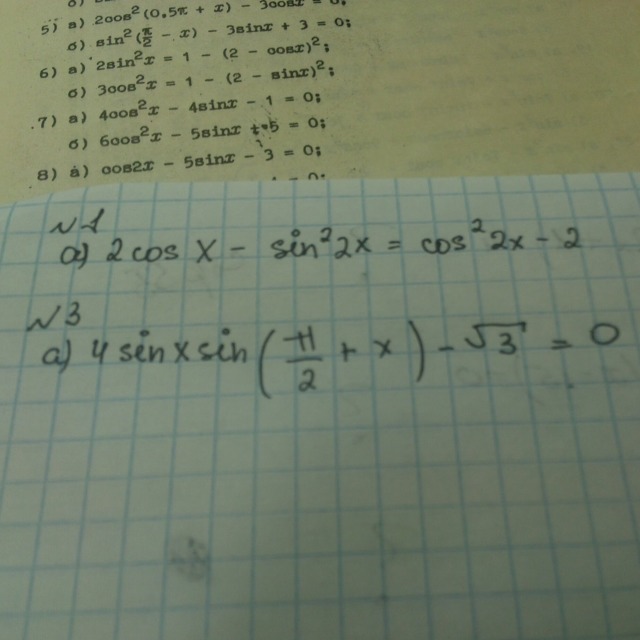 5) а) 2cos²(0.5π + x) - 3cosx = 0;
б) sin²(π/2 - x) - 3sinx + 3 = 0;
6) а) 2sin²x = 1 - (2 - cosx)²;
б) 3cos²x = 1 - (2 - sinx)²;
7) а) 4cos²x - 4sinx - 1 = 0;
б) 6cos²x - 5sinx + 5 = 0;
8) а) cos2x - 5sinx - 3 = 0;
N1
а) 2 cos x - sin² 2x = cos² 2x - 2
N3
а) 4 sin x sin (π/2 + x) - √3 = 0